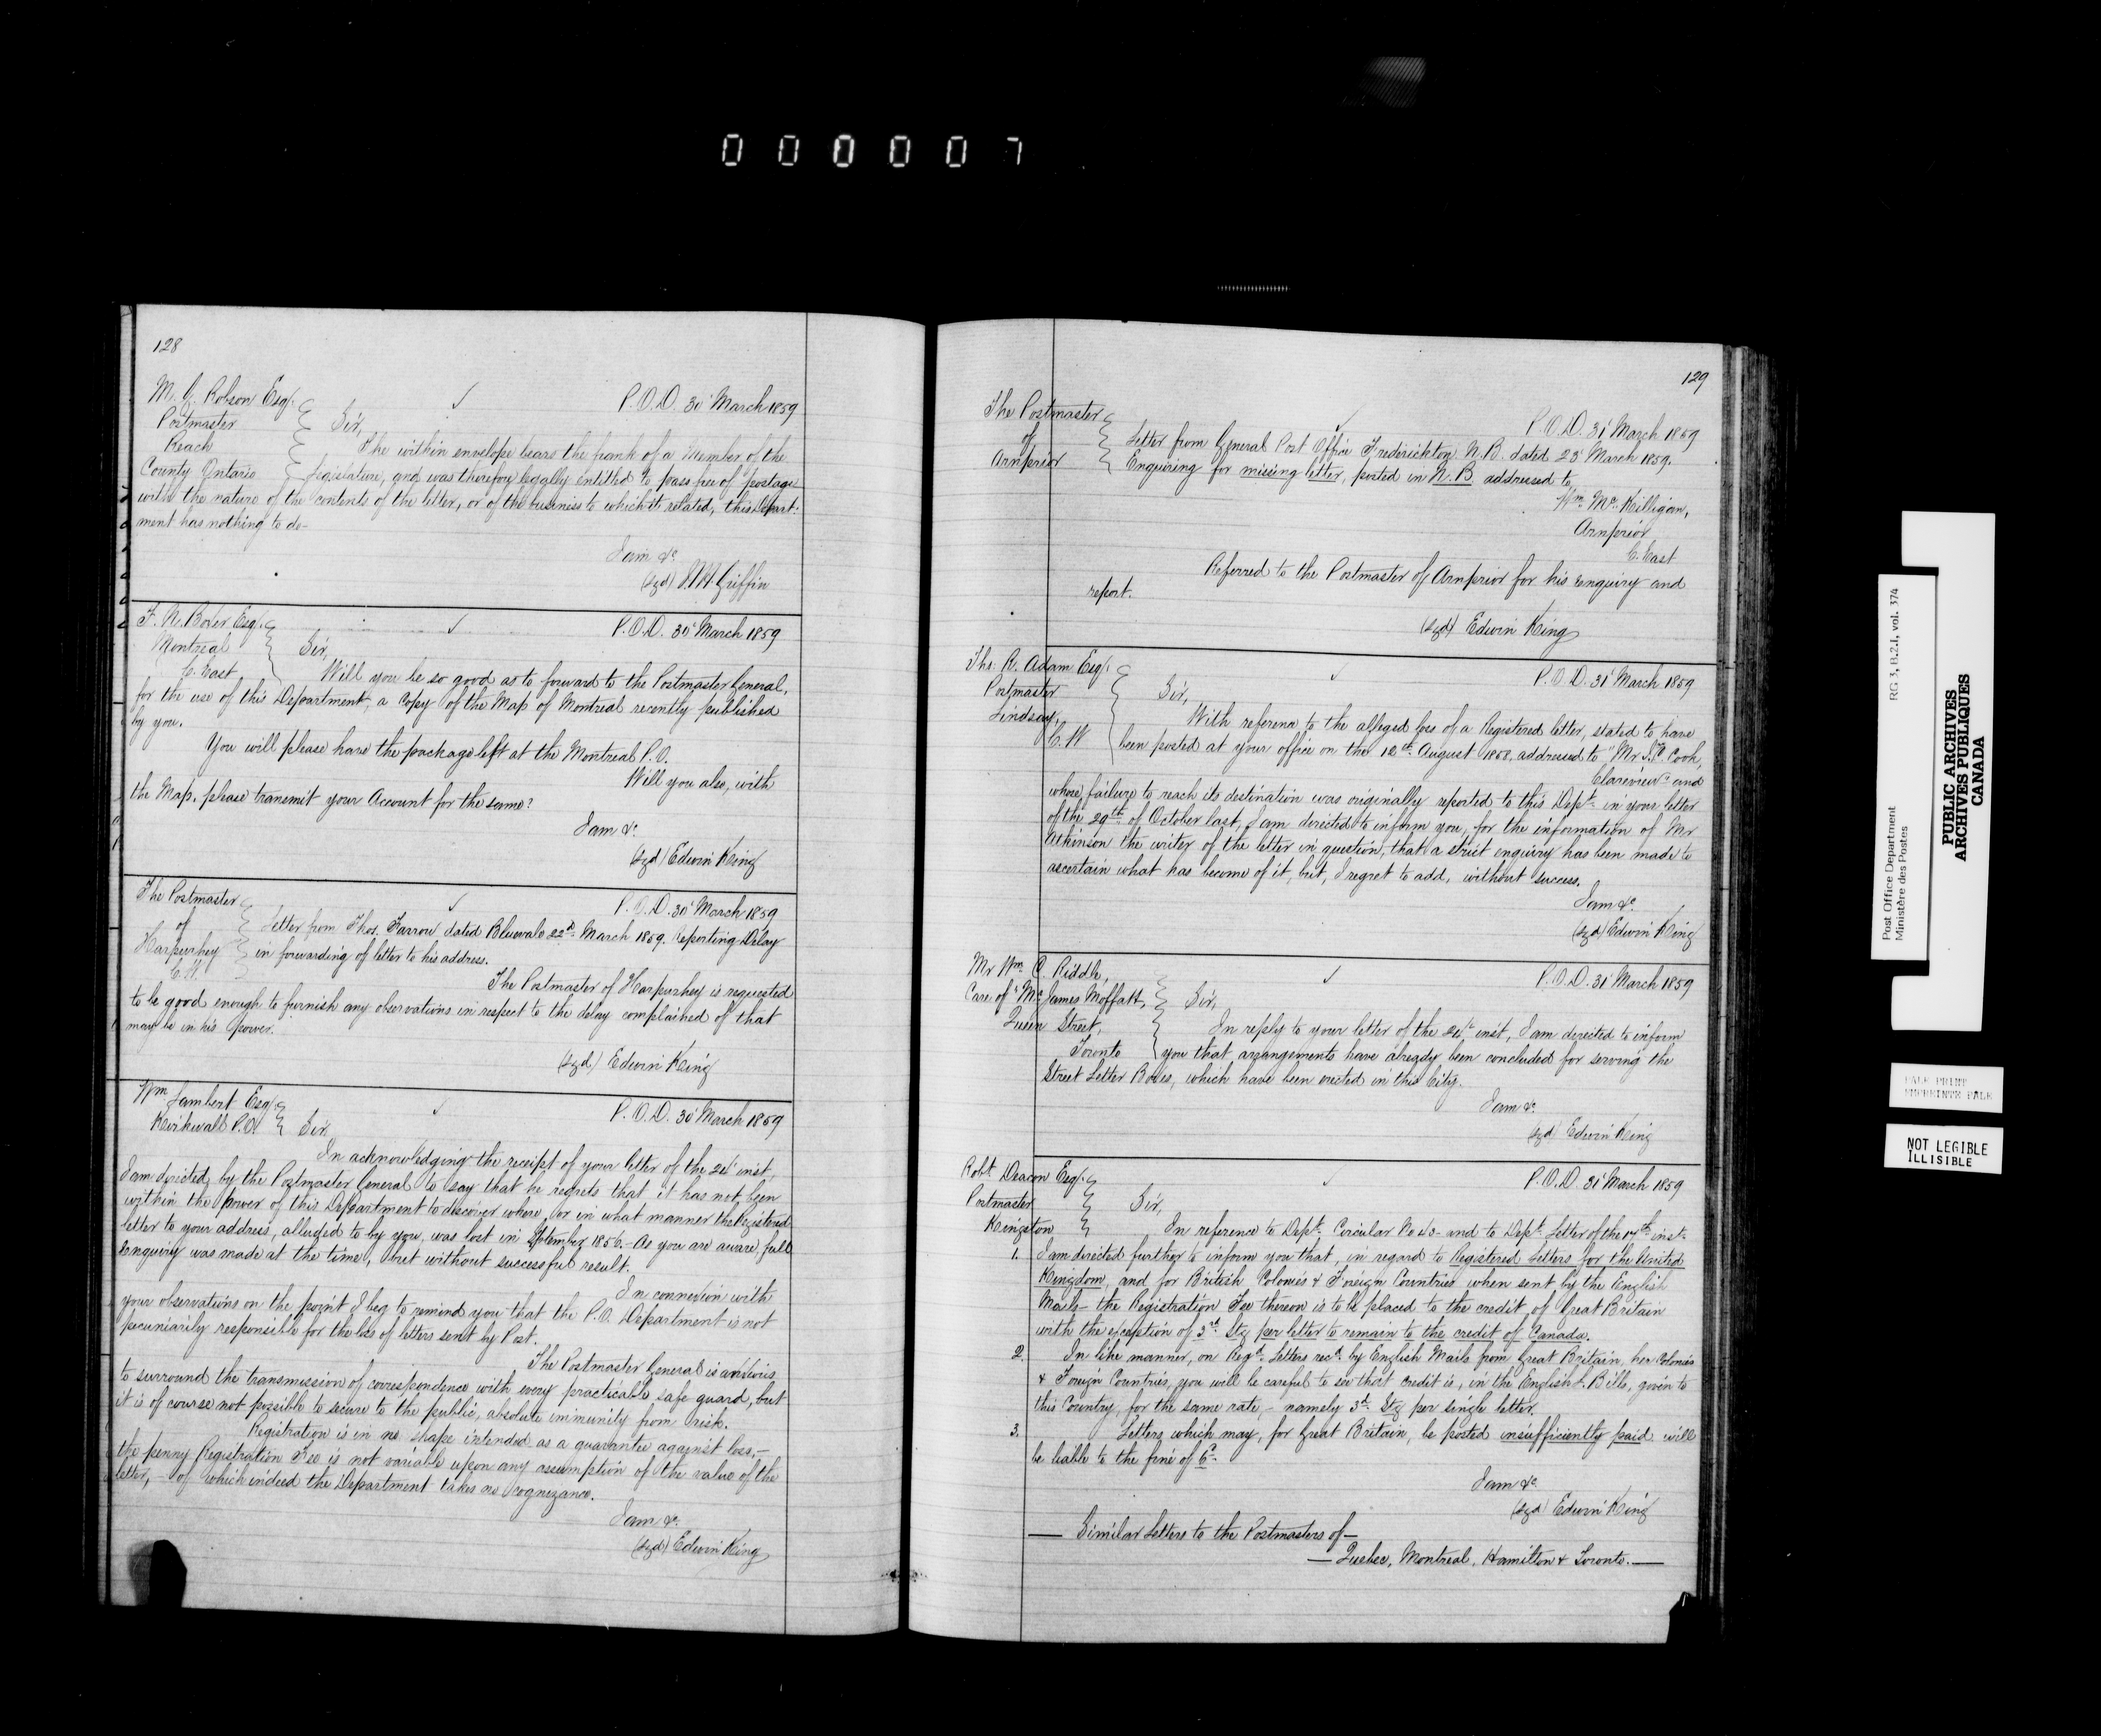 000007
128
M. G. Robson Esq.
Postmaster
Reach
County Ontario
P.O.D. 30 March 1859
Sir,
The within envelope bears the frank of a Member of the
Legislature, and was therefore legally entitled to pass free of postage
with the nature of the contents of the letter, or of the business to which it related, this Depart:
ment has nothing to do-
I am &c
(sgd) W H Griffin
F. N. Boxer Esq.
Montreal
C. East
P.O.D. 30 March 1859
Sir,
Will you be so good as to forward to the Postmaster General,
for the use of this Department, a Copy of the Map of Montreal recently published
by you.
You will please have the package left at the Montreal P.O.
Will you also, with
the Map, please transmit your Account for the same?
I am &c.
(sgd) Edwin King
The Postmaster
of
Harpurhey
C.W.
P.O.D. 30 March 1859
Letter from Thos. Farrow dated Bluevale 22d March 1859. Reporting Delay
in forwarding of letter to his address.
The Postmaster of Harpurhey is requested
to be good enough to furnish any observations in respect to the delay complained of that
may be in his power.
(sgd) Edwin King
Wm Lambert Esq.
Kirkwall P.O.
P.O.D. 30 March 1859
Sir,
In acknowledging the receipt of your letter of the inst,
I am directed by the Postmaster General to say that he regrets that it has not been
within the power of this Department to discover where, or in what manner the Registered
letter to your address, alluded to by you, was lost in September 1856.- As you are aware, full
enquiry was made at the time, but without successful result.
In connexion with
your observations on the point I beg to remind you that the P.O. Department is not
pecuniarily responsible for the loss of letters sent by Post.
The Postmaster General is anxious
to surround the transmission of correspondence with every practicable safe guard, but
it is of course not possible to secure to the public, absolute immunity from risk.
Registration is in no shape intended as a guarantee against loss,-
the penny Registration Fee is not variable upon any assumption of the value of the
letter, - of which indeed the Department takes no cognizance.
I am &c.
(sgd) Edwin King
129
The Postmaster
of
Arnprior
P.O.D. 31 March 1859
Letter from General Post Office Frederickton N.B. dated 23 March 1859.
Enquiring for missing letter, posted in N.B. addressed to
Wm McKilligan,
Arnprior
C. East
Referred to the Postmaster of Arnprior for his enquiry and
report.
(sgd) Edwin King
Tho: R. Adam Esq.
Postmaster
Lindsay,
C.W
P.O.D. 31 March 1859
Sir,
With reference to the alleged loss of a Registered letter, stated to have
been posted at your office on the 12th August 1858, addressed to "Mr Cook,
Clareview" and
whose failure to reach its destination was originally reported to this Dept in your letter
of the 29th of October last, I am directed to inform you, for the information of Mr
Atkinson the writer of the letter in question, that a strict enquiry has been made to
ascertain what has become of it, but, I regret to add, without success.
I am &c.
(sgd) Edwin King
Mr Wm C. Riddle,
Care of "Mr James Moffatt,
Queen Street,
Toronto
P.O.D. 31 March 1859
Sir,
In reply to your letter of the inst, I am directed to inform
you that arrangements have already been concluded for serving the
Street Letter Boxes, which have been erected in this City.
I am &c.
(sgd) Edwin King
Robt Deacon Esq.
Postmaster
Kingston
P.O.D. 31 March 1859
Sir,
In reference to Dept. Circular No 43 and to Dept. Letter of the 17th inst.
1. I am directed further to inform you that, in regard to Registered Letters for the United
Kingdom, and for British Colonies & Foreign Countries when sent by the English
Mails- the Registration Fee thereon is to be placed to the credit of Great Britain
with the exception of 3d Stg per letter to remain to the credit of Canada.
2. In like manner, on Regd Letters recd by English Mails from Great Britain, her Colonies
& Foreign Countries, you will be careful to see that credit is, in the English L. Bills, given to
this Country, for the same rate,- namely 3d Stg per single letter.
3. Letters which may, for Great Britain, be posted insufficiently paid will
be liable to the fine of 6d.
I am &c.
(sgd) Edwin King
— Similar Letters to the Postmasters of —
— Quebec, Montreal, Hamilton & Toronto. —
Post Office Department
Ministère des Postes
RG 3, B.2.1, vol. 374
PUBLIC ARCHIVES
ARCHIVES PUBLIQUES
CANADA
PALE PRINT
EMPREINTE PALE
NOT LEGIBLE
ILLISIBLE